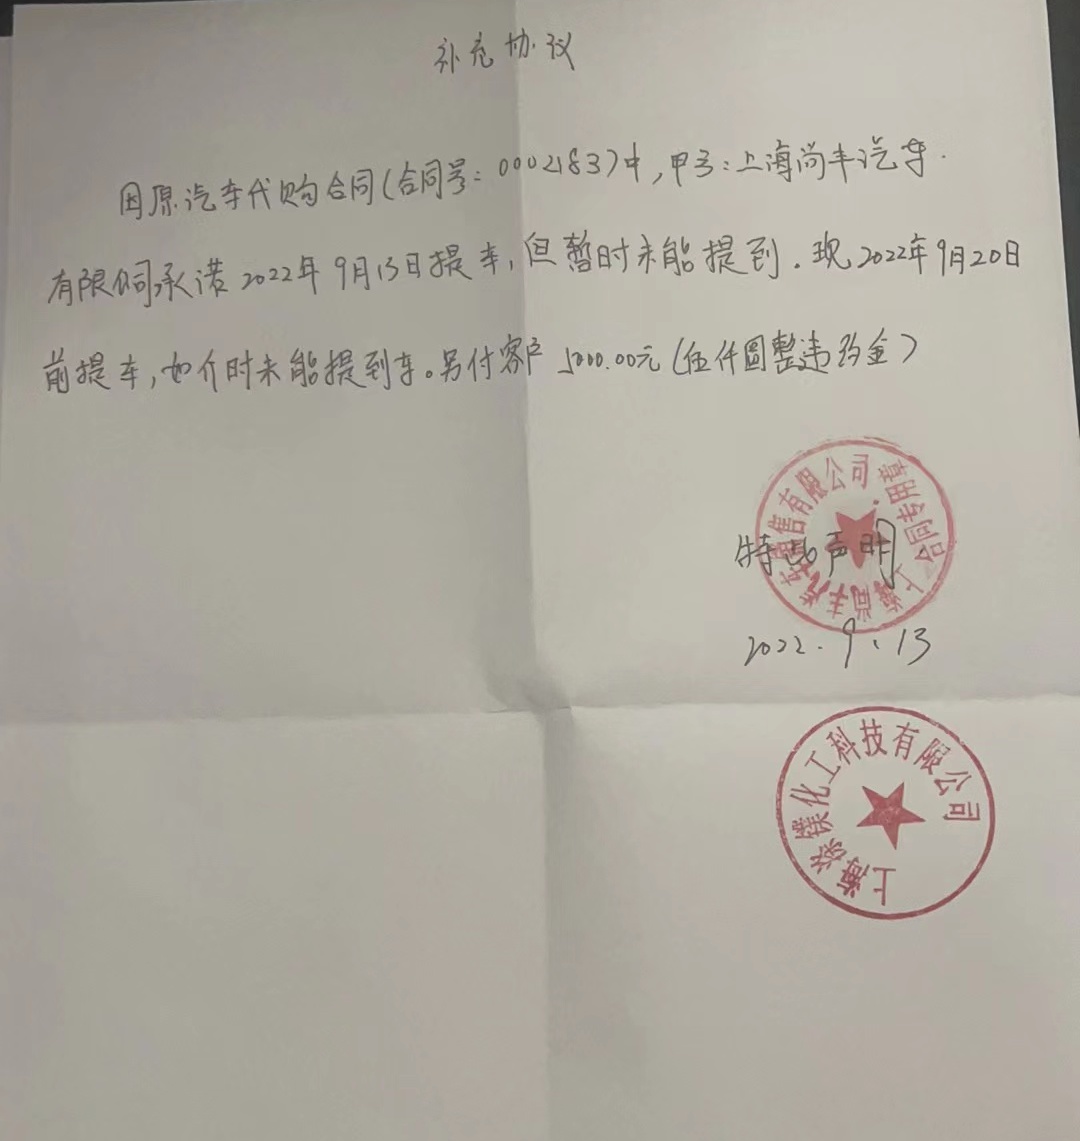 补充协议
因原汽车代购合同(合同号:0002183)中,甲方:上海尚丰汽车
有限公司承诺2022年9月13日提车,但暂时未能提到.现2022年9月20日
前提车,如介时未能提到车。另付客户5000.00元(伍仟圆整违约金)
上海尚丰汽车销售有限公司
合同专用章
特此声明
2022.9.13
上海 镁化工科技有限公司